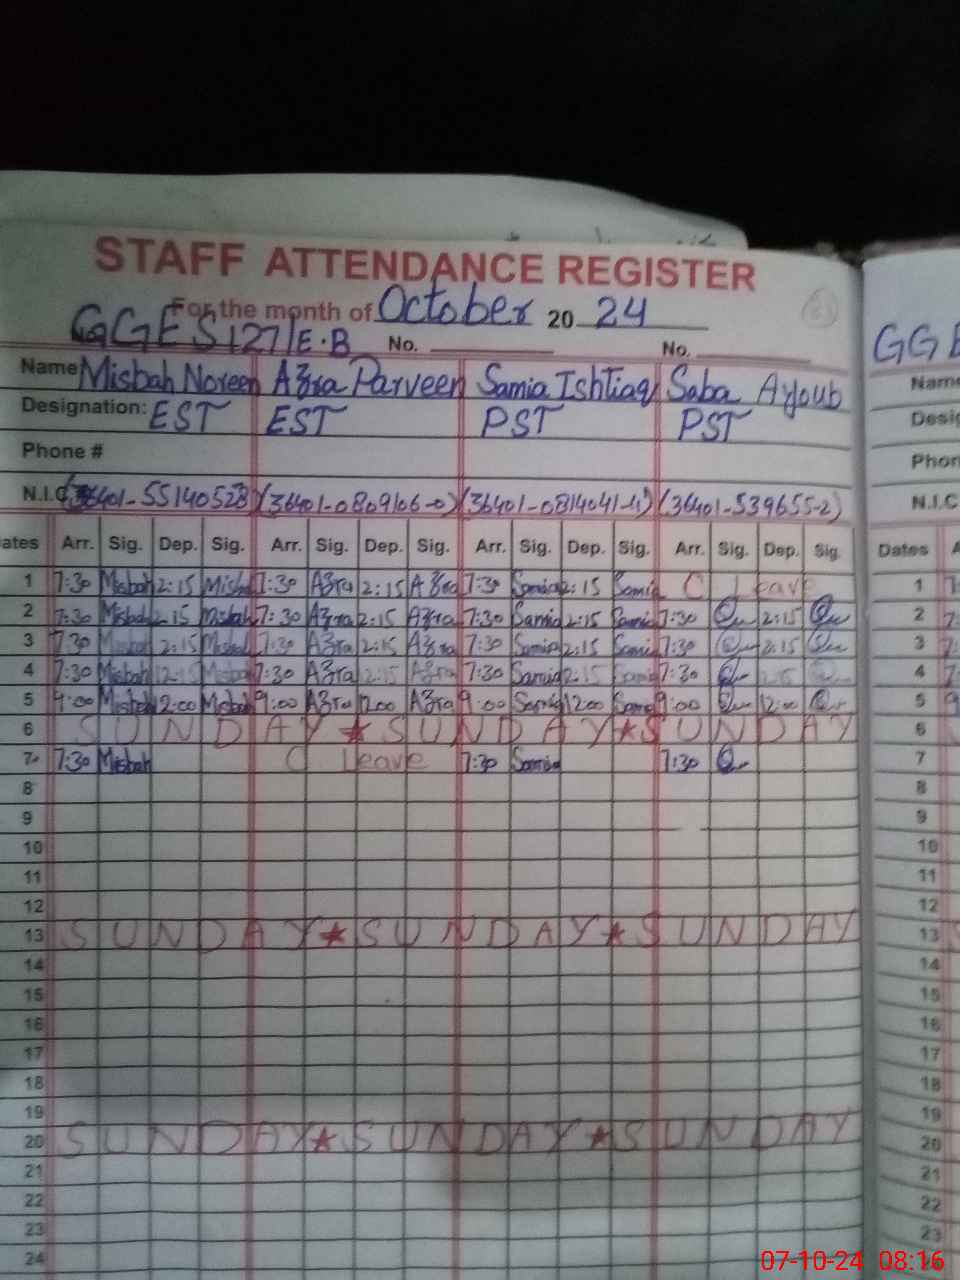 STAFF ATTENDANCE REGISTER
For the month of October 20 24
GGES 127/E.B No. No. GGE
Name Misbah Noreen Azra Parveen Samia Ishtiaq Saba Ayoub Name
Designation: EST EST PST PST Desig
Phone # Phon
N.I.C (36401-5514052 (36401-0809106-0) (36401-0814041- (36401-539655-2) N.I.C
ates Arr. Sig. Dep. Sig. Arr. Sig. Dep. Sig. Arr. Sig. Dep. Sig. Arr. Sig. Dep. Sig. Dates A
1 7:30 Misbah 2:15 Misbah 7:30 Azra 2:15 Azra 7:30 Samia 2:15 Samia C Leave 1
2 7:30 Misbah 2:15 Misbah 7:30 Azra 2:15 Azra 7:30 Samia 2:15 Samia 7:30 2:15 2
3 7:30 Misbah 2:15 Misbah 7:30 Azra 2:15 Azra 7:30 Samia 2:15 Samia 7:30 2:15 3
4 7:30 Misbah 2:15 Misbah 7:30 Azra 2:15 Azra 7:30 Samia 2:15 Samia 7:30 2:15 4
5 9:00 Misbah 12:00 Misbah 9:00 Azra 1200 Azra 9:00 Samia 1200 Samia 9:00 12:00 5
6 SUNDAY ★ SUNDAY ★ SUNDAY 6
7 7:30 Misbah C Leave 7:30 Samia 7:30 7
8 8
9 9
10 10
11 11
12 12
13 SUNDAY ★ SUNDAY ★ SUNDAY 13
14 14
15 15
16 16
17 17
18 18
19 19
20 SUNDAY ★ SUNDAY ★ SUNDAY 20
21 21
22 22
23 23
24
07-10-24 08:16